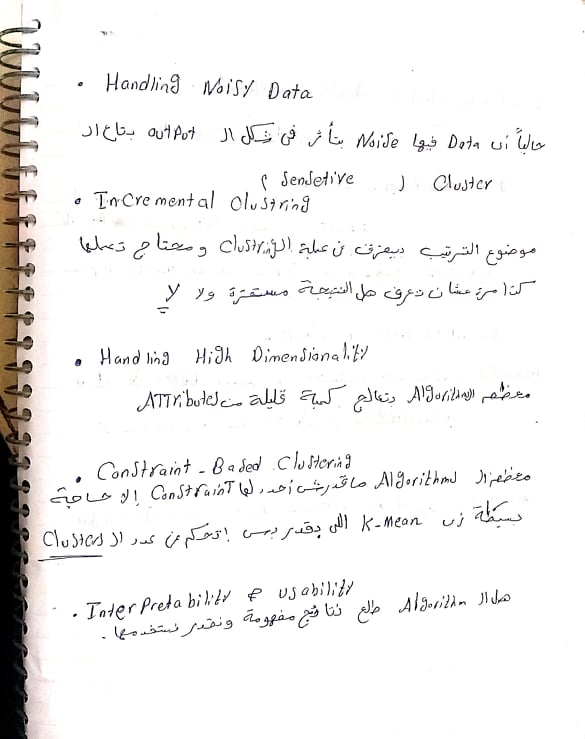 • Handling Noisy Data
حالياً أن Data فيها Noise بتأثر في شكل ال output بتاع ال
Cluster ل Sensetive
• InCremental Clustring
موضوع الترتيب بيفرق في عملية ال Clustring ومحتاج تعملها
كذا مرة عشان تعرف هل النتيجة مستقرة ولا لا
• Handling High Dimensionality
معظم ال Algorithm بتعالج كمية قليلة من ATTributes
• Constraint-Based Clustering
معظم ال Algorithms ماقدرش أحدد لها Constraint إلا حاجة
بسيطة زي K-Mean اللي بقدر بس اتحكم في عدد ال Clusters
• InterPretability & usability
هل ال Algorithm طلع نتائج مفهومة ونقدر نستخدمها.